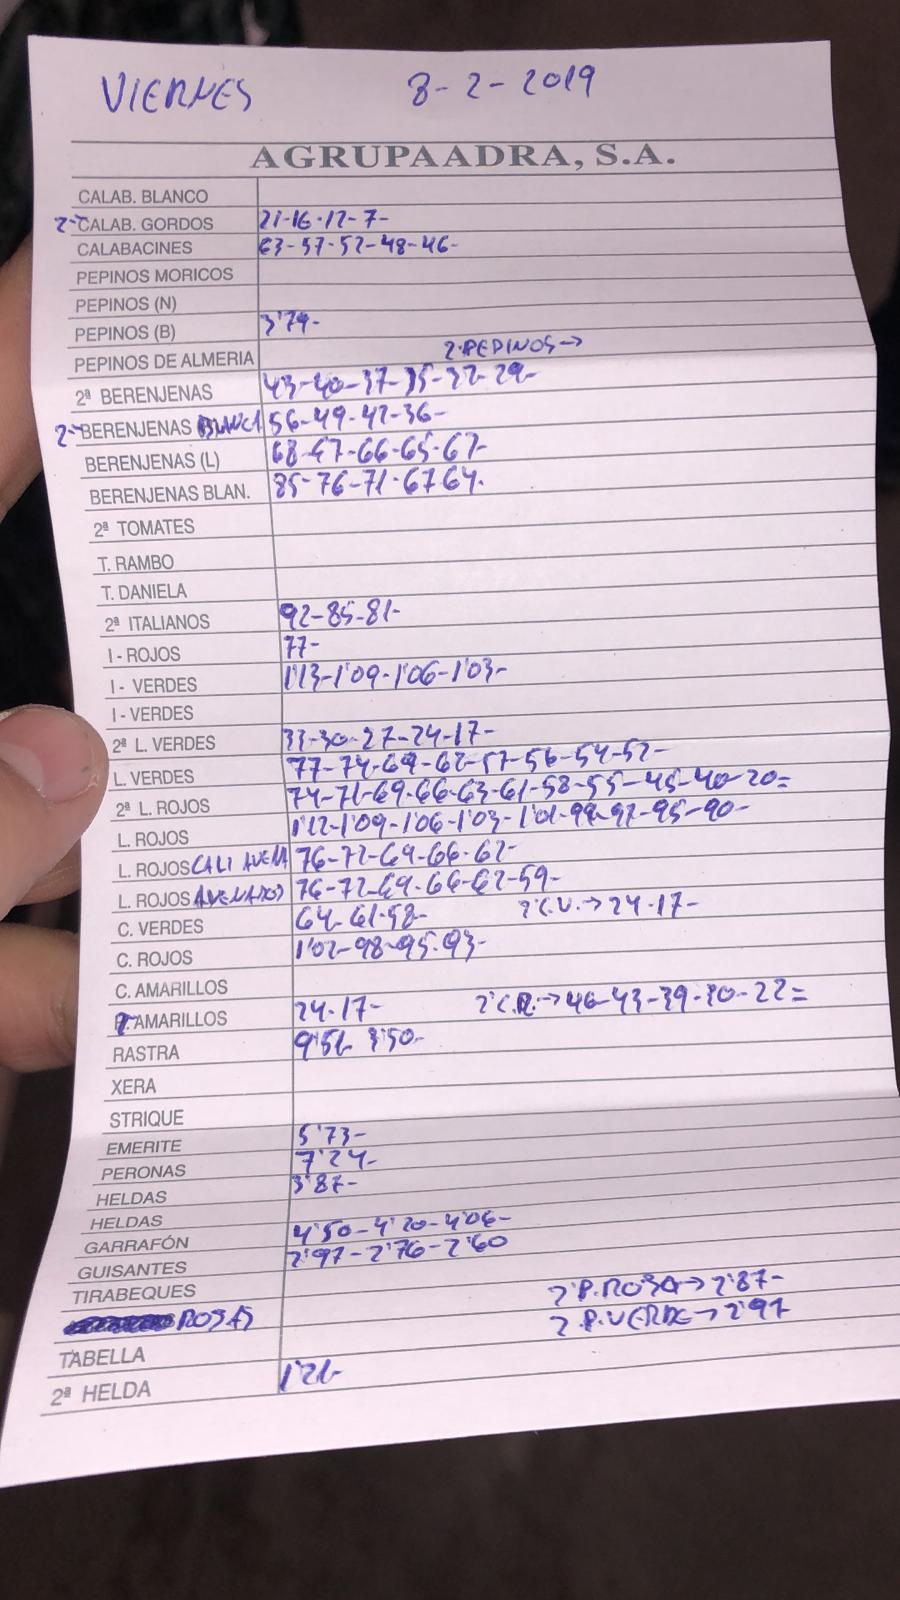 VIERNES 8-2-2019
AGRUPAADRA, S.A.
CALAB. BLANCO
2- CALAB. GORDOS 21-16-12-7-
CALABACINES 63-57-52-48-46-
PEPINOS MORICOS
PEPINOS (N)
PEPINOS (B) 3'79-
PEPINOS DE ALMERIA 2.PEPINOS→
2ª BERENJENAS 43-40-37-35-32-29-
2- BERENJENAS BLANCA 56-49-42-36-
BERENJENAS (L) 68-67-66-65-62-
BERENJENAS BLAN. 85-76-71-67 64.
2ª TOMATES
T. RAMBO
T. DANIELA
2ª ITALIANOS 92-85-81-
I - ROJOS 77-
I - VERDES 1'13-1'09-1'06-1'03-
I - VERDES
2ª L. VERDES 33-30-27-24-17-
L. VERDES 77-74-69-62-57-56-54-52-
2ª L. ROJOS 74-71-69-66-63-61-58-55-45-40-20=
L. ROJOS 1'12-1'09-1'06-1'03-1'01-99-97-95-90-
L. ROJOS 76-72-69-66-62-
L. ROJOS 76-72-69-66-62-59-
C. VERDES 64-61-58- 2'C.V.→24-17-
C. ROJOS 1'02-98-95-93-
C. AMARILLOS
AMARILLOS 24-17- 2'C.R.→46-43-39-30-22=
RASTRA 9'51-
XERA
STRIQUE
EMERITE 5'73-
PERONAS 7'24-
HELDAS 3'87-
HELDAS
GARRAFÓN 4'50-4'20-4'06-
GUISANTES 2'97-2'76-2'60
TIRABEQUES
ROSAS 2'P.ROSA→2'87-
TABELLA 2.P.VERDE→2'97
2ª HELDA 1'21-